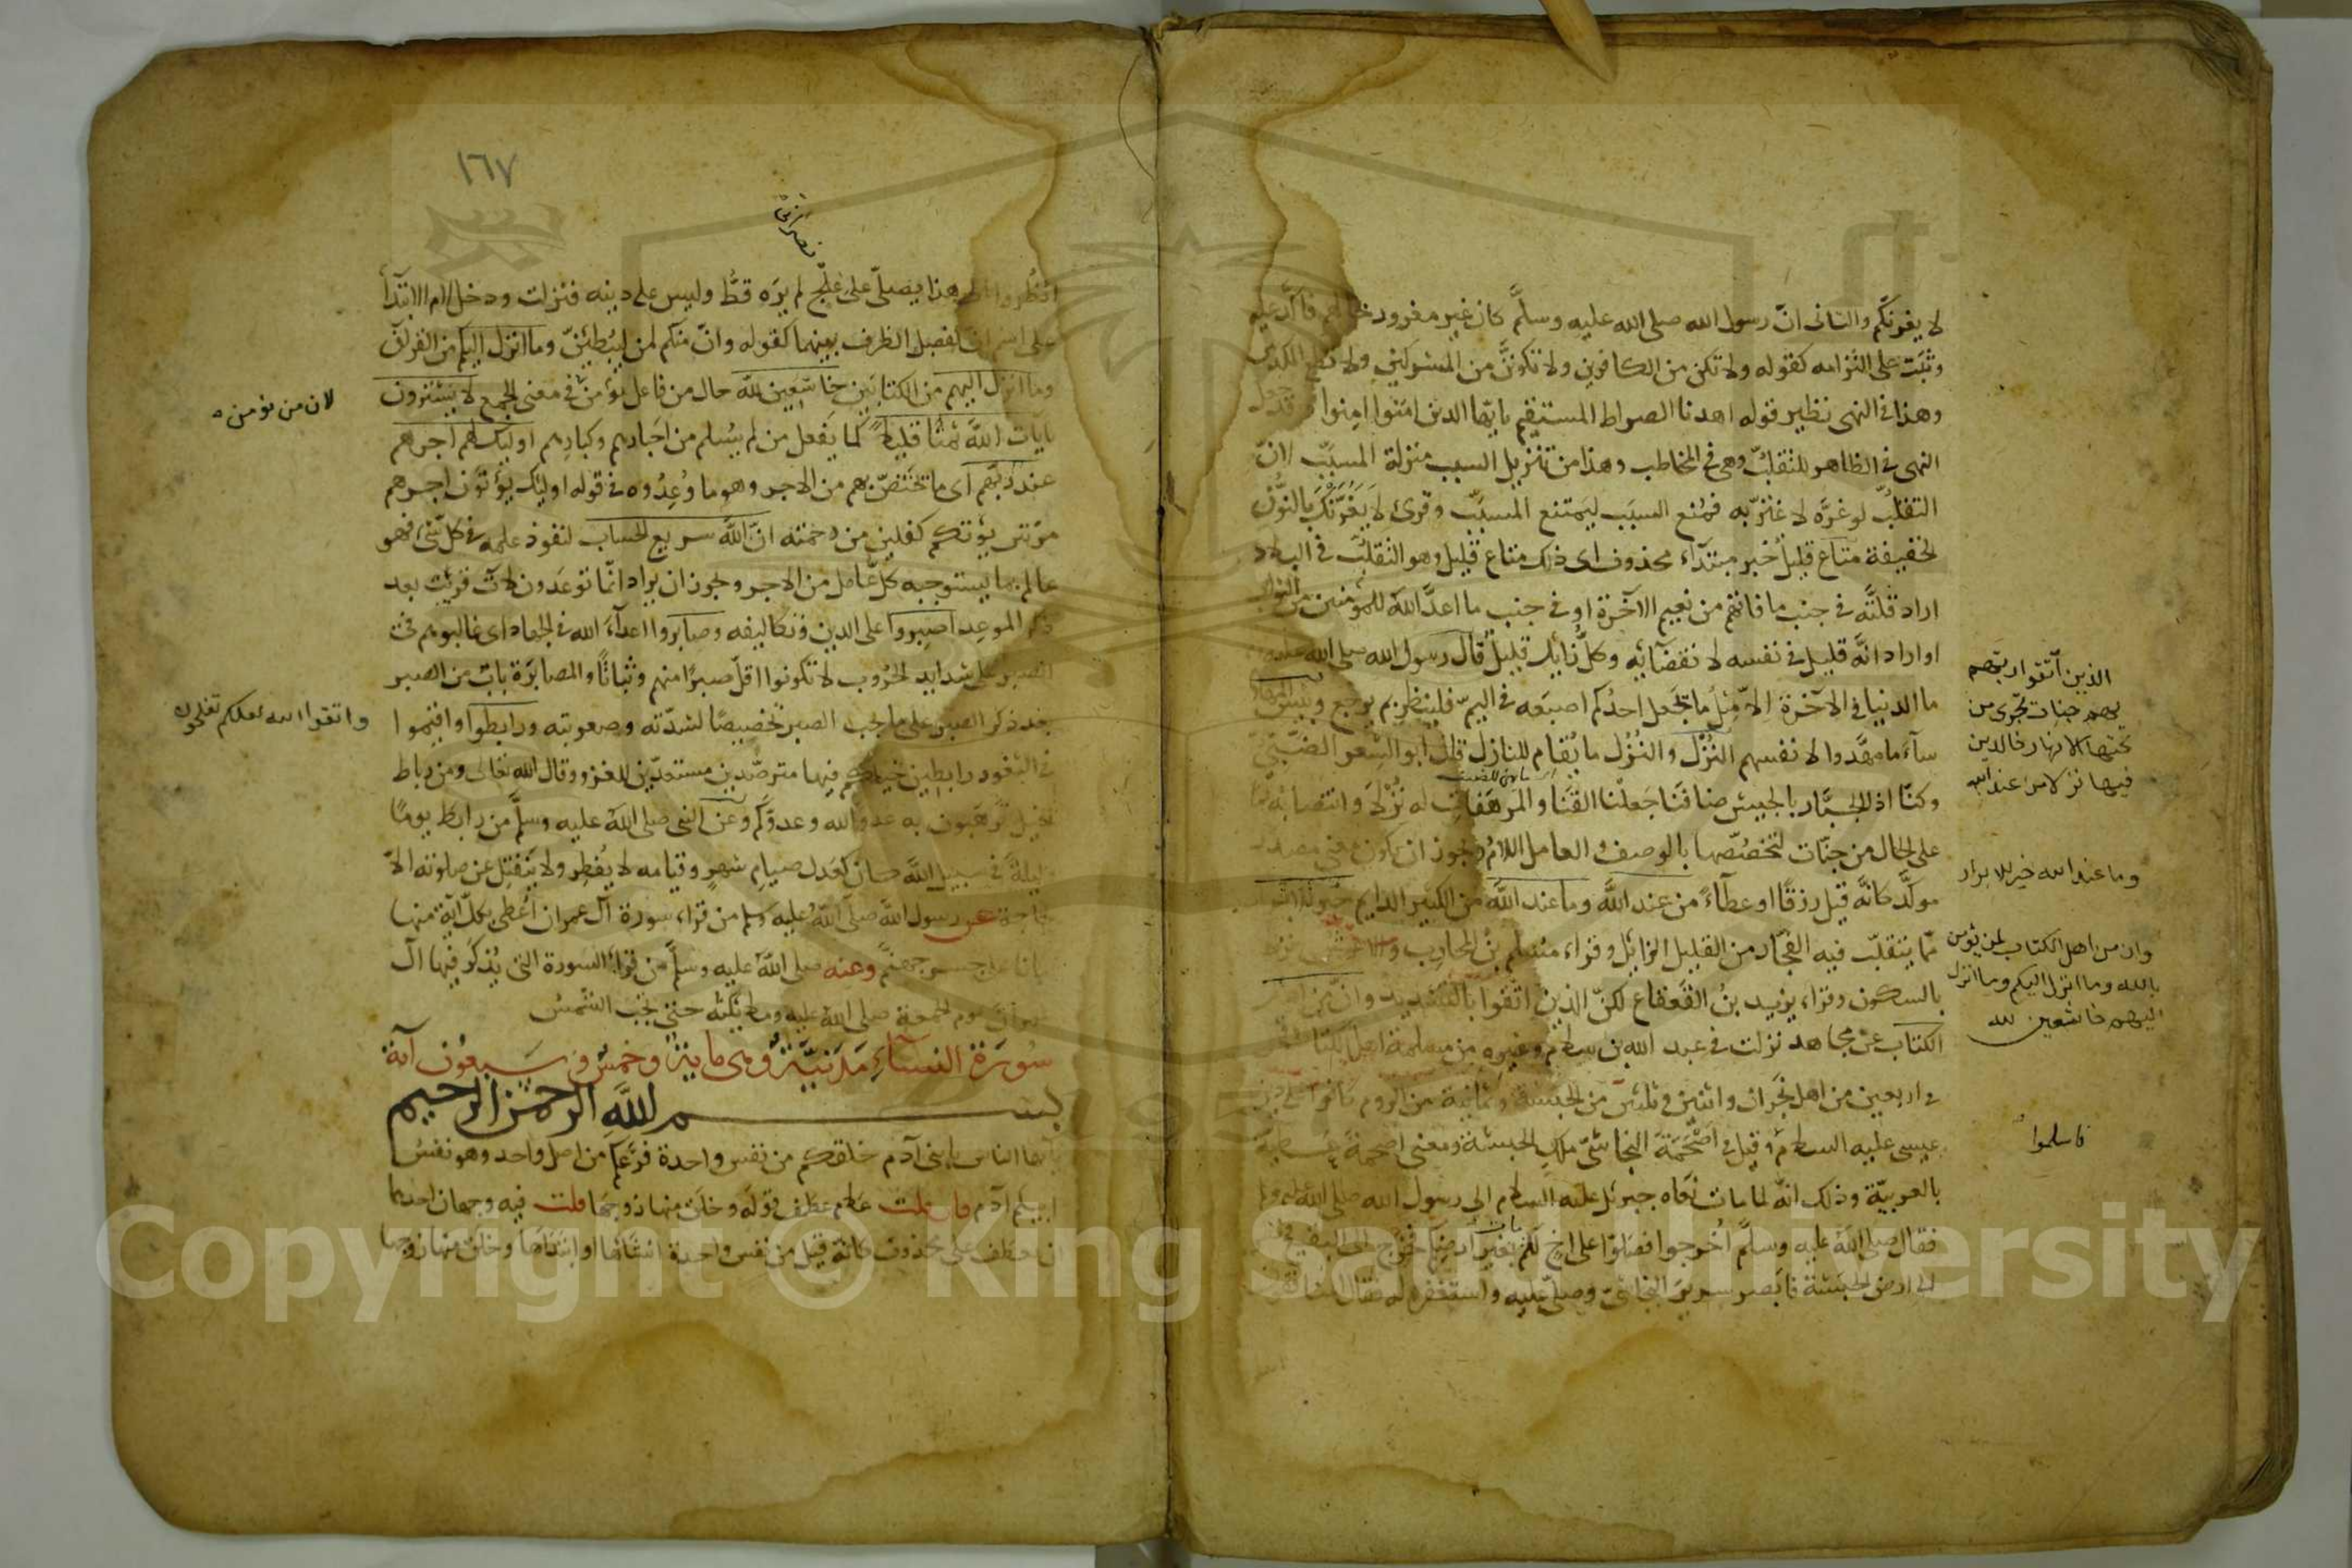 لا يغرنكم والثانى انّ رسول الله صلى الله عليه وسلَّم كان غير مغرور بحالهم فاكّد عليه
وثبت على التزامه كقوله ولا تكن من الكافرين ولا تكوننّ من المشركين ولا تطع المكذبين
وهذا فى النهى نظير قوله اهدنا الصراط المستقيم يايّها الذين امنوا امنوا وقد جعل
النهى فى الظاهر للتقلّب وهى فى المخاطب وهذا من تنزيل السبب منزلة المسبّب لانّ
التقلّب لو غرّه لاغترّ به فمُنع السبَب ليمتنع المسبّب وقرئ لا يغرّنْك بالنّون
الخفيفة متاع قليل خبر مبتدآء محذوف اى ذلك متاع قليل وهو التقلّب فى البلاد
اراد قلّته فى جنب ما فاتهم من نعيم الآخرة او فى جنب ما اعدّ الله للمؤمنين من الثواب
او اراد انّه قليل فى نفسه لانقضآئه وكلّ زايل قليل قال رسول الله صلى الله عليه
ما الدنيا فى الآخرة الّا مِثلُ ما يجعل احدُكم اصبعه فى اليمّ فلينظر بم يرجع وبئس المهاد
سآء ما مهّدوا لانفسهم النُزْل والنُزُل ما يُقام للنازل قال ابو الشعر الضبّىّ
وكنّا اذ الجبّار بالجيش ضافنا جعلنا القنا والمرهفات له نُزلا وانتصابه امّا
على الحال من جنّات لتخصّصها بالوصف والعامل اللام ويجوز ان يكون فى معنى مصدر
موكّد كانّه قيل رزقًا او عطآءً من عند الله وما عند الله من الكثير الدايم خير للابرار
ممّا يتقلّب فيه الفجّار من القليل الزائل وقرآء مسلم بنُ المحارب والاعمش نزلا
بالسكون وقرآء يزيد بنُ القعقاع لكنّ الذين اتّقوا بالتشديد وانّ من اهل
الكتاب عن مجاهد نزلت فى عبد الله بن سلام وغيره من مسلمة اهل الكتاب
فى اربعين من اهل نجران واثنين وثلثين من الحبشة وثمانية من الروم كانوا على دين
عيسى عليه السلام وقيل فى اصحمة النجاشىّ ملك الحبشة ومعنى اصحمة عطية
بالعربيّة وذلك انّه لما مات نعاه جبرئل عليه السلام الى رسول الله صلى الله عليه وسلم
فقال صلى الله عليه وسلَّم اخرجوا فصلّوا على اخ لكم مات بغير ارضكم فخرج الى البقيع ونظر
الى ارض الحبشة فابصر سرير النجاشىّ وصلّى عليه واستغفر له فقال المنافقون
الذين اتّقوا ربّهم
لهم جنات تجرى من
تحتها الانهار خالدين
فيها نزلا من عند الله
وما عند الله خير للابرار
وان من اهل الكتاب لمن يؤمن
بالله وما انزل اليكم وما انزل
اليهم خاشعين لله
فاسلموا
١٦٧
نصرانى
انظروا الى هذا يصلّى على علج لم يره قطّ وليس على دينه فنزلت ودخل لام الابتدآ
على اسم ان لفصل الظرف بينهما كقوله وانّ منكم لمن ليبطئنّ وما انزل اليكم من القرآن
وما انزل اليهم من الكتابين خاشعين لله حال من فاعل يؤمن فى معنى الجمع لا يشترون
بآيات الله ثمنًا قليلًا كما يفعل من لم يسلم من احبارهم وكبارهم اوليك لهم اجرهم
عند ربّهم اى ما تختصّ بهم من الاجر وهو ما وُعدُوه فى قوله اوليك يؤتون اجرهم
مرّتين يؤتكم كفلين من رحمته انّ الله سريع الحساب لنفوذ علمه فى كلّ شئ فهو
عالم بما يستوجبه كلّ عامل من الاجر ويجوز ان يراد انّما توعدون لآت قريب بعد
ذكر الموعد اصبروا على الدين وتكاليفه وصابروا اعدآء الله فى الجهاد اى غالبوهم فى
الصبر على شدايد الحُروب لا تكونوا اقلّ صبرًا منهم وثباتًا والمصابرة باب من الصبر
بعد ذكر الصبر على ما يجب الصبر تخصيصًا لشدّته وصعوبته ورابطوا واقيموا
فى الثغور رابطين خيلكم فيها مترصّدين مستعدّين للغزو وقال الله تعالى ومن رباط
الخيل ترهبون به عدو الله وعدوّكم وعن النبى صلى الله عليه وسلَّم من رابط يومًا
وليلة فى سبيل الله كان كعدل صيام شهر وقيامه لا يفطر ولا ينفتل عن صلوته الّا
لحاجة عن رسول الله صلّى الله عليه وسلم من قرآء سورة آل عمران اُعطى بكلّ آية منها
امانا على جسر جهنّم وعنه صلى الله عليه وسلّم من قرآء السورة التى يُذكر فيها آل
عمران يوم الجمعة صلى الله عليه وملائكته حتى تجب الشمس
سُورَة النسآء مَدَنيَّة وهى ماية وخمس وسبعون آية
بسم الله الرحمن الرحيم
يا ايّها الناس يا بنى آدم خلقكم من نفس واحدة فرّعكم من اصل واحد وهو نفسُ
ابيكم آدم فان قلت علام عطف قوله وخلق منها زوجها قلت فيه وجهان احدهما
ان يعطف على محذوف كانّه قيل من نفس واحدة انشأها او ابتدأها وخلق منها زوجها
لان من يؤمن ه
واتقوا الله لعلكم تفلحون
Copyright © King Saud University